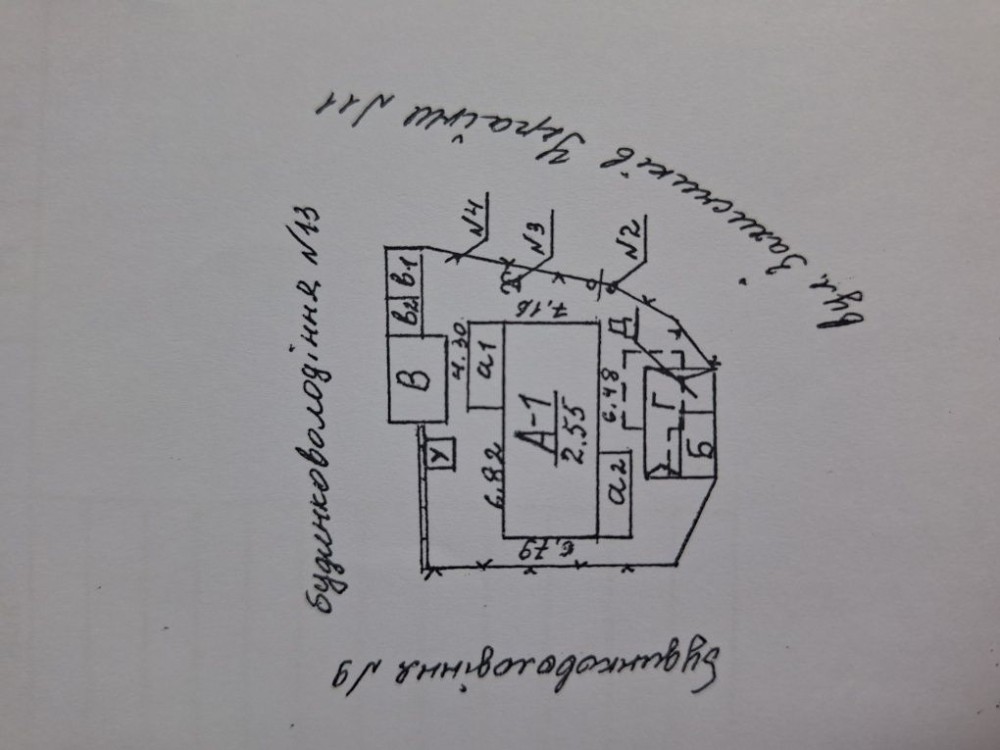 вул. Захисників України №11
будинковолодіння №13
будинковолодіння №9
№4
№3
№2
в2
в1
В
4.30
а1
7,18
У
6.82
А-1
2.55
6.48
а2
6,79
Д
Г
Б